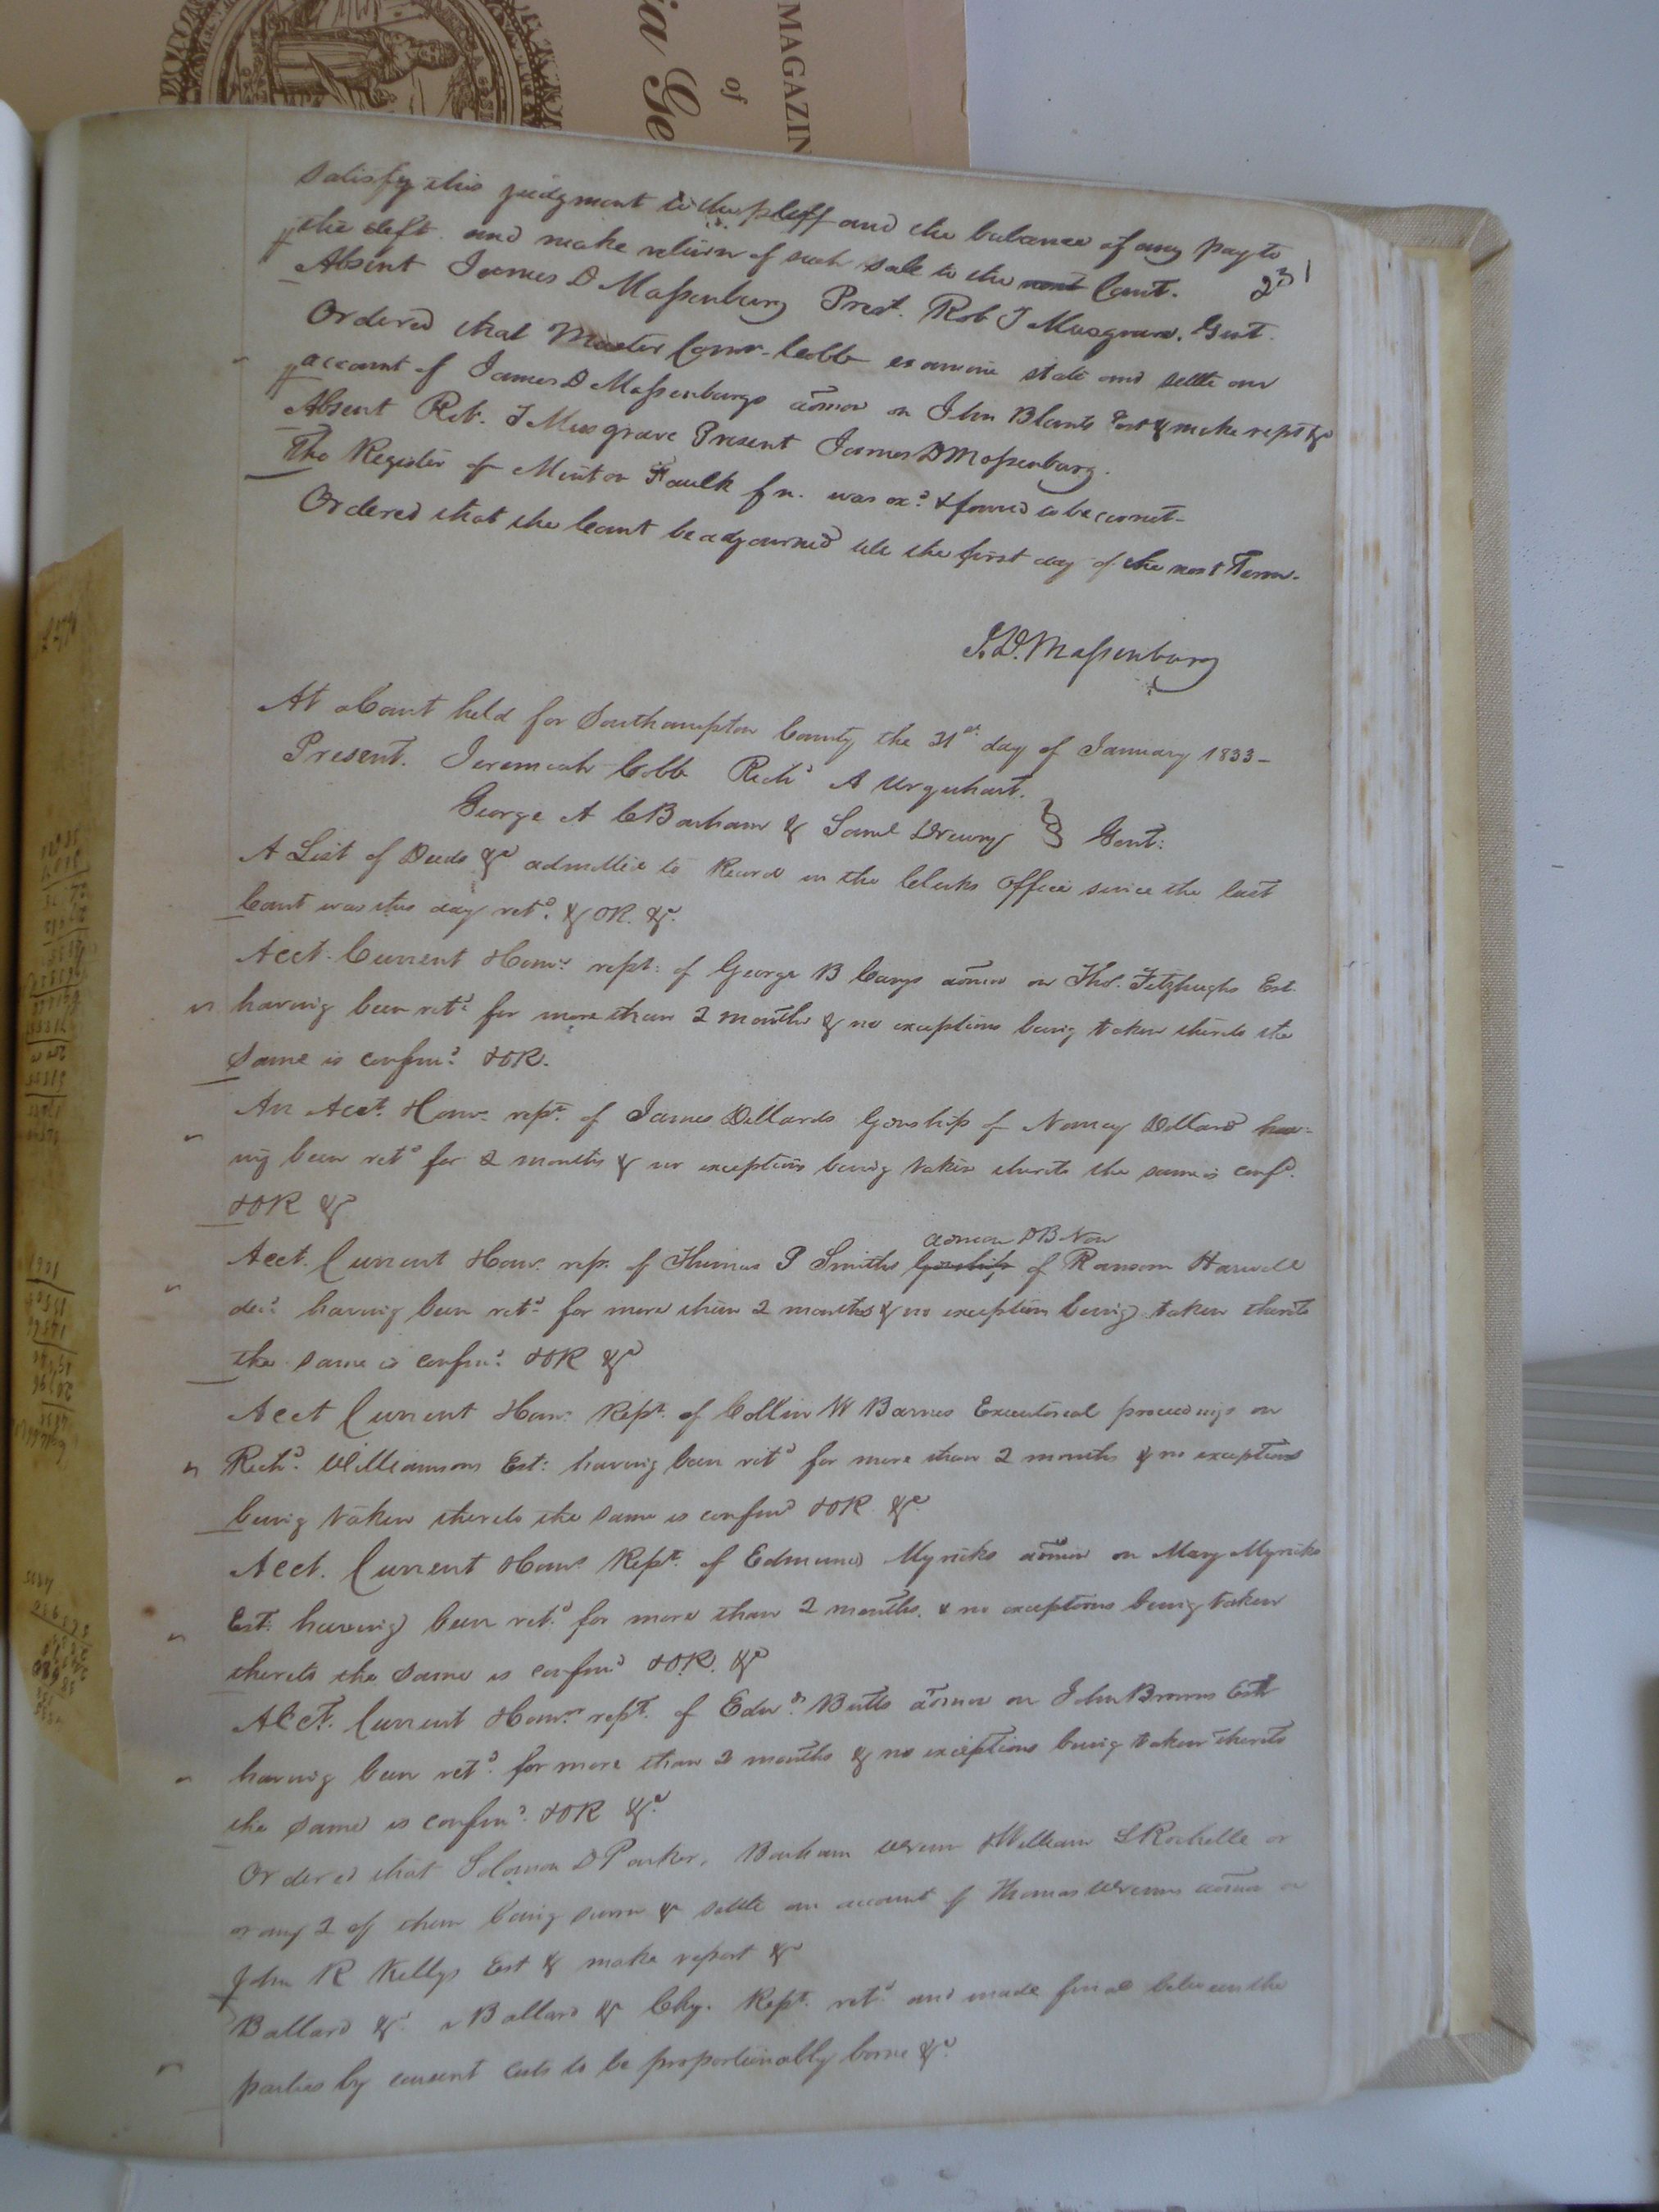 MAGAZIN
of
ia Ge
231
satisfy this judgment to the pltff and the balance if any pay to
the deft. and make return of such sale to the next Court.
Absent James D Massenburg Prest. Rob T Musgrave. Gent.
Ordered that Master Comr. Cobb examine state and settle an
account of James D Massenburgs admon on John Blunts Est & make rept &c
Absent Rob. T Musgrave Present James D Massenburg.
The Register of Minton Faulk fn. was exd. & found to be correct-
Ordered that the Court be adjourned till the first day of the next Term.
J. D. Massenburg
At a Court held for Southampton County the 21st day of January 1833-
Present. Jeremiah Cobb Richd A Urquhart.
George A C Barham & Saml Drewry } Gent:
A List of Deeds &c admitted to Record in the Clerks Office since the last
Court was this day retd. & OR. &c.
Acct. Current & Comrs rept: of George B Carys admon on Thos. Fitzhughs Est.
having been retd for more than 2 months & no exceptions being taken thereto the
same is confmd. & OR.
An Acct. & Comrs rept. of James Dillards Gdnship of Nancy Dillard hav-
ing been retd for 2 months & no exceptions being taken thereto the same is confd.
& OR &c
Acct. Current & Comrs rep. of Thomas P Smiths Gdnship of Ransom Harwell
admon DB Non
decd. having been retd. for more than 2 months & no exceptions being taken thereto
the same is confmd. & OR &c
Acct Current & Comrs Rept. of Collin W Barnes Executorial proceedings on
Richd. Williamsons Est: having been retd for more than 2 months & no exceptions
being taken thereto the same is confmd & OR &c.
Acct. Current & Comrs Rept. of Edmund Myricks admon on Mary Myricks
Est: having been retd. for more than 2 months. & no exceptions being taken
thereto the same is confmd & OR. &c
Acct. Current & Comrs rept. of Edwd. Butts admon on John Browns Est
having been retd. for more than 2 months & no exceptions being taken thereto
the same is confmd. & OR &c.
Ordered that Solomon D Parker, Barham Wrenn & William L Rochelle or
or any 2 of them being sworn & settle an account of Thomas Wrenns admon on
John R Kellys Est & make report &c
Ballard &c. v Ballard &c Chy. Rept. retd. and made final between the
parties by consent Costs to be proportionably borne &c.